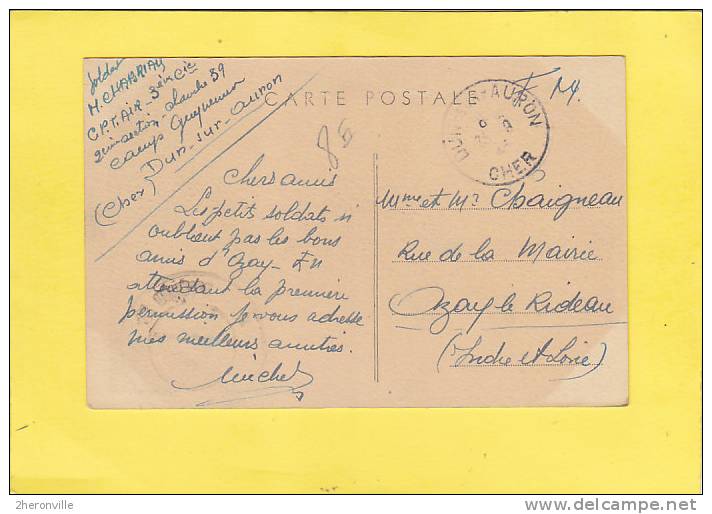 Soldat
M. CHABRIAN
C.P.T. AIR - 3ème Cie
2ème section - planche 39
Camp Guynemer
Dun-sur-Auron
(Cher)
CARTE POSTALE
F.M.
85
DUN-SUR-AURON
CHER
Chers amis
Les petits soldats n'
oublient pas les bons
amis d'Azay - En
attendant la première
permission je vous adresse
mes meilleurs amitiés.
Michel
Mme et Mr Chaigneau
Rue de la Mairie
Azay le Rideau
(Indre et Loire)
2heronville
delcampe.net